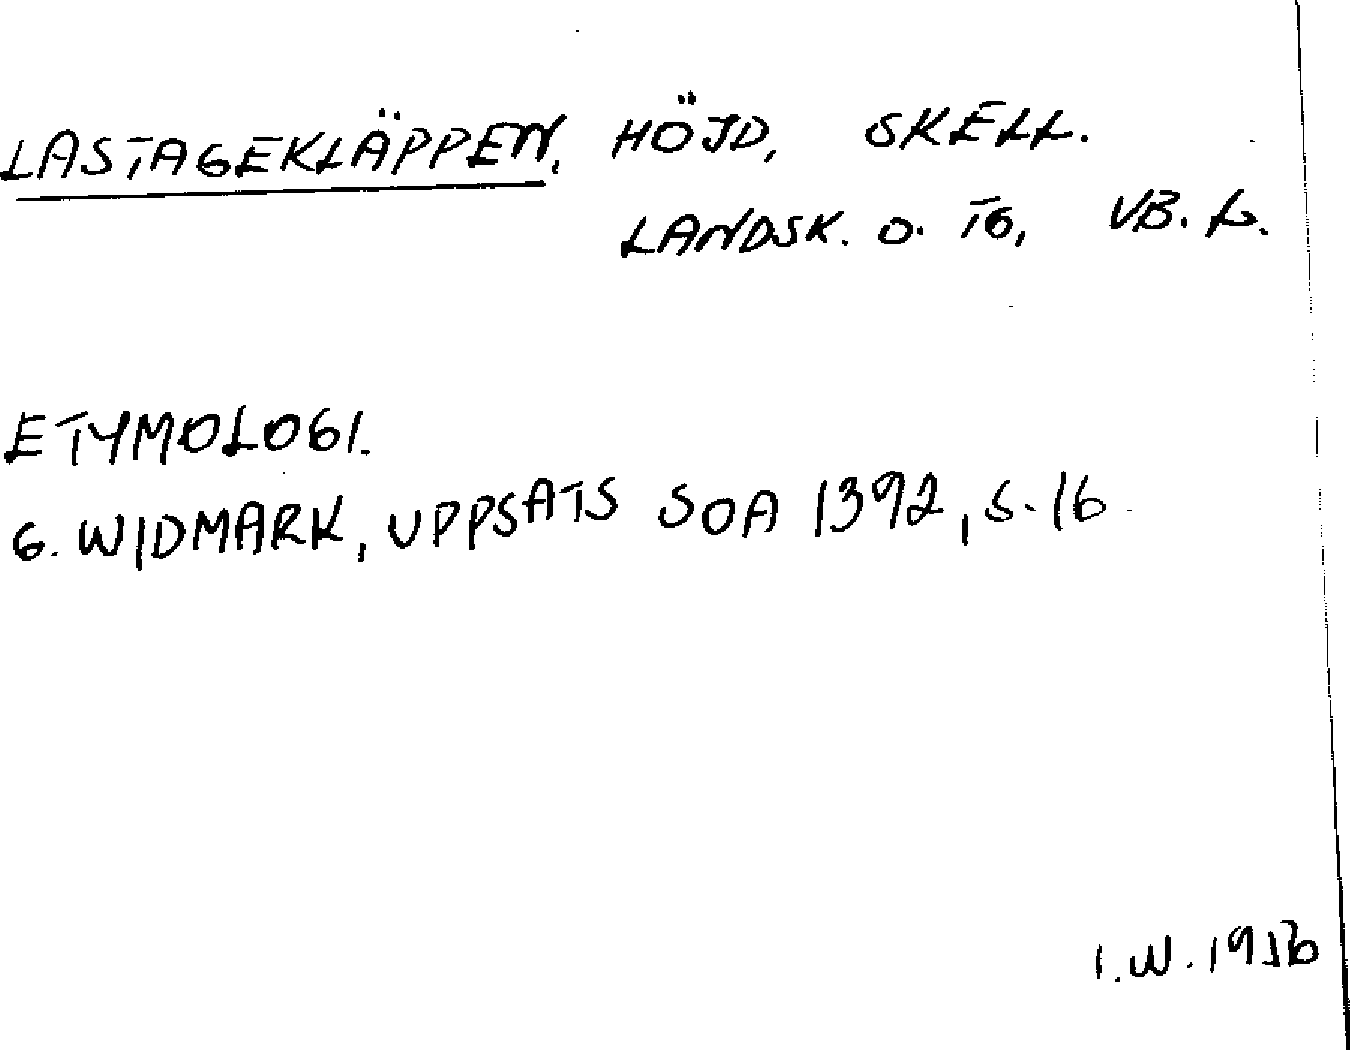 LASTAGEKLÄPPEN, HÖJD, SKELL.
LANDSK. O. TG, VB. L.
ETYMOLOGI.
G. WIDMARK, UPPSATS SOA 1392, S. 16
I.W. 1956